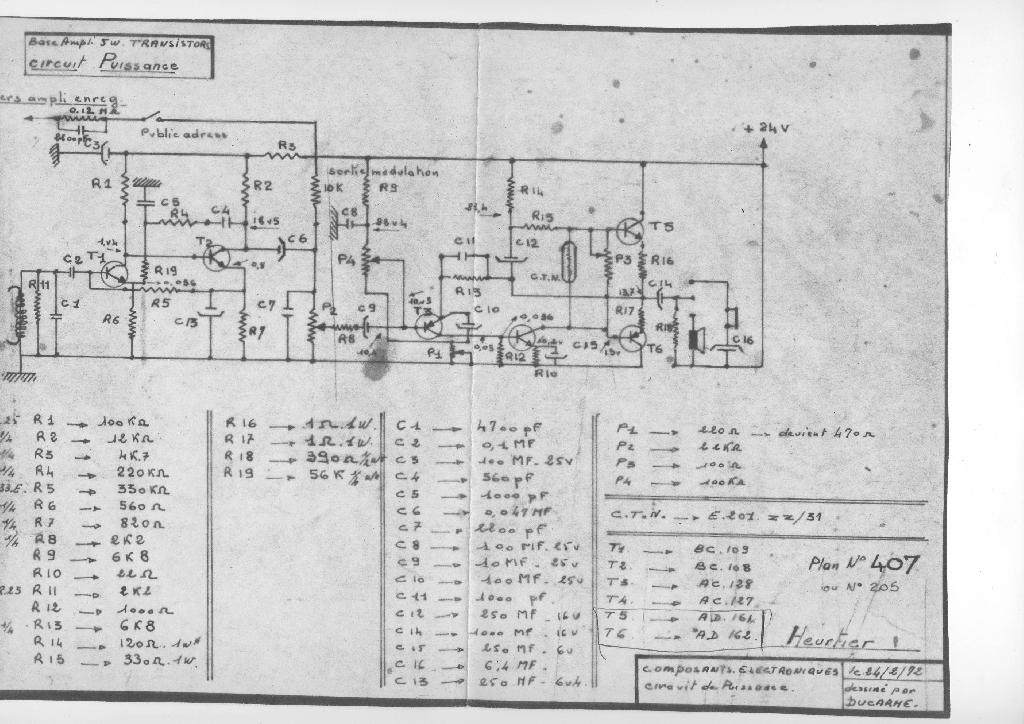 Base Ampli 5W. TRANSISTORS
circuit Puissance
ers ampli enreg.
0.12 MΩ
Public adress
C3
R3
+ 24V
R1
C5
R4
C4
R2
18v5
10K
sortie modulation
R9
C8
R14
R15
C12
T5
1v4
T2
C6
P4
C11
C.T.N.
P3
R16
C2
T1
R19
0,8
R11
C1
R5
R13
13.7
C14
R6
C13
R7
C7
P2
R8
C9
T3
C10
0,036
R17
R18
C15
T6
C16
P1
R12
R10
R1 → 100KΩ
R2 → 12KΩ
R3 → 4K.7
R4 → 220KΩ
R5 → 330KΩ
R6 → 560Ω
R7 → 820Ω
R8 → 2K2
R9 → 6K8
R10 → 22Ω
R11 → 2K2
R12 → 1000Ω
R13 → 6K8
R14 → 120Ω.1W
R15 → 330Ω.1W.
R16 → 1Ω.1W.
R17 → 1Ω.1W.
R18 → 390Ω 1/2 W
R19 → 56K 1/2 W
C1 → 4700 pF
C2 → 0,1 MF
C3 → 100 MF. 25V
C4 → 560 pF
C5 → 1000 pF
C6 → 0,047 MF
C7 → 2200 pF
C8 → 100 MF. 25V
C9 → 10 MF. 25V
C10 → 100 MF. 25V
C11 → 1000 pF.
C12 → 250 MF. 16V
C14 → 1000 MF. 16V
C15 → 250 MF. 6V
C16 → 6,4 MF.
C13 → 250 MF. 6V4.
P1 → 220Ω → devient 470Ω
P2 → 22KΩ
P3 → 100Ω
P4 → 100KΩ
C.T.N. → E.201. ZZ/31
T1. → BC.109
T2. → BC.108
T3 → AC.128
T4. → AC.127
T5 → AD.161
T6 → AD 162.
Plan N° 407
ou N° 205
Heurtier
COMPOSANTS. ELECTRONIQUES
circuit de Puissance.
le 24/2/72
dessiné par
DUCARME.